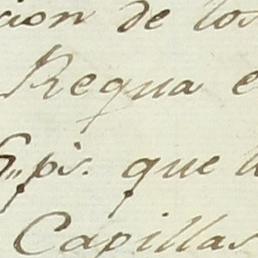 cion de los
Requa e
6,, ps. que l
Capillas